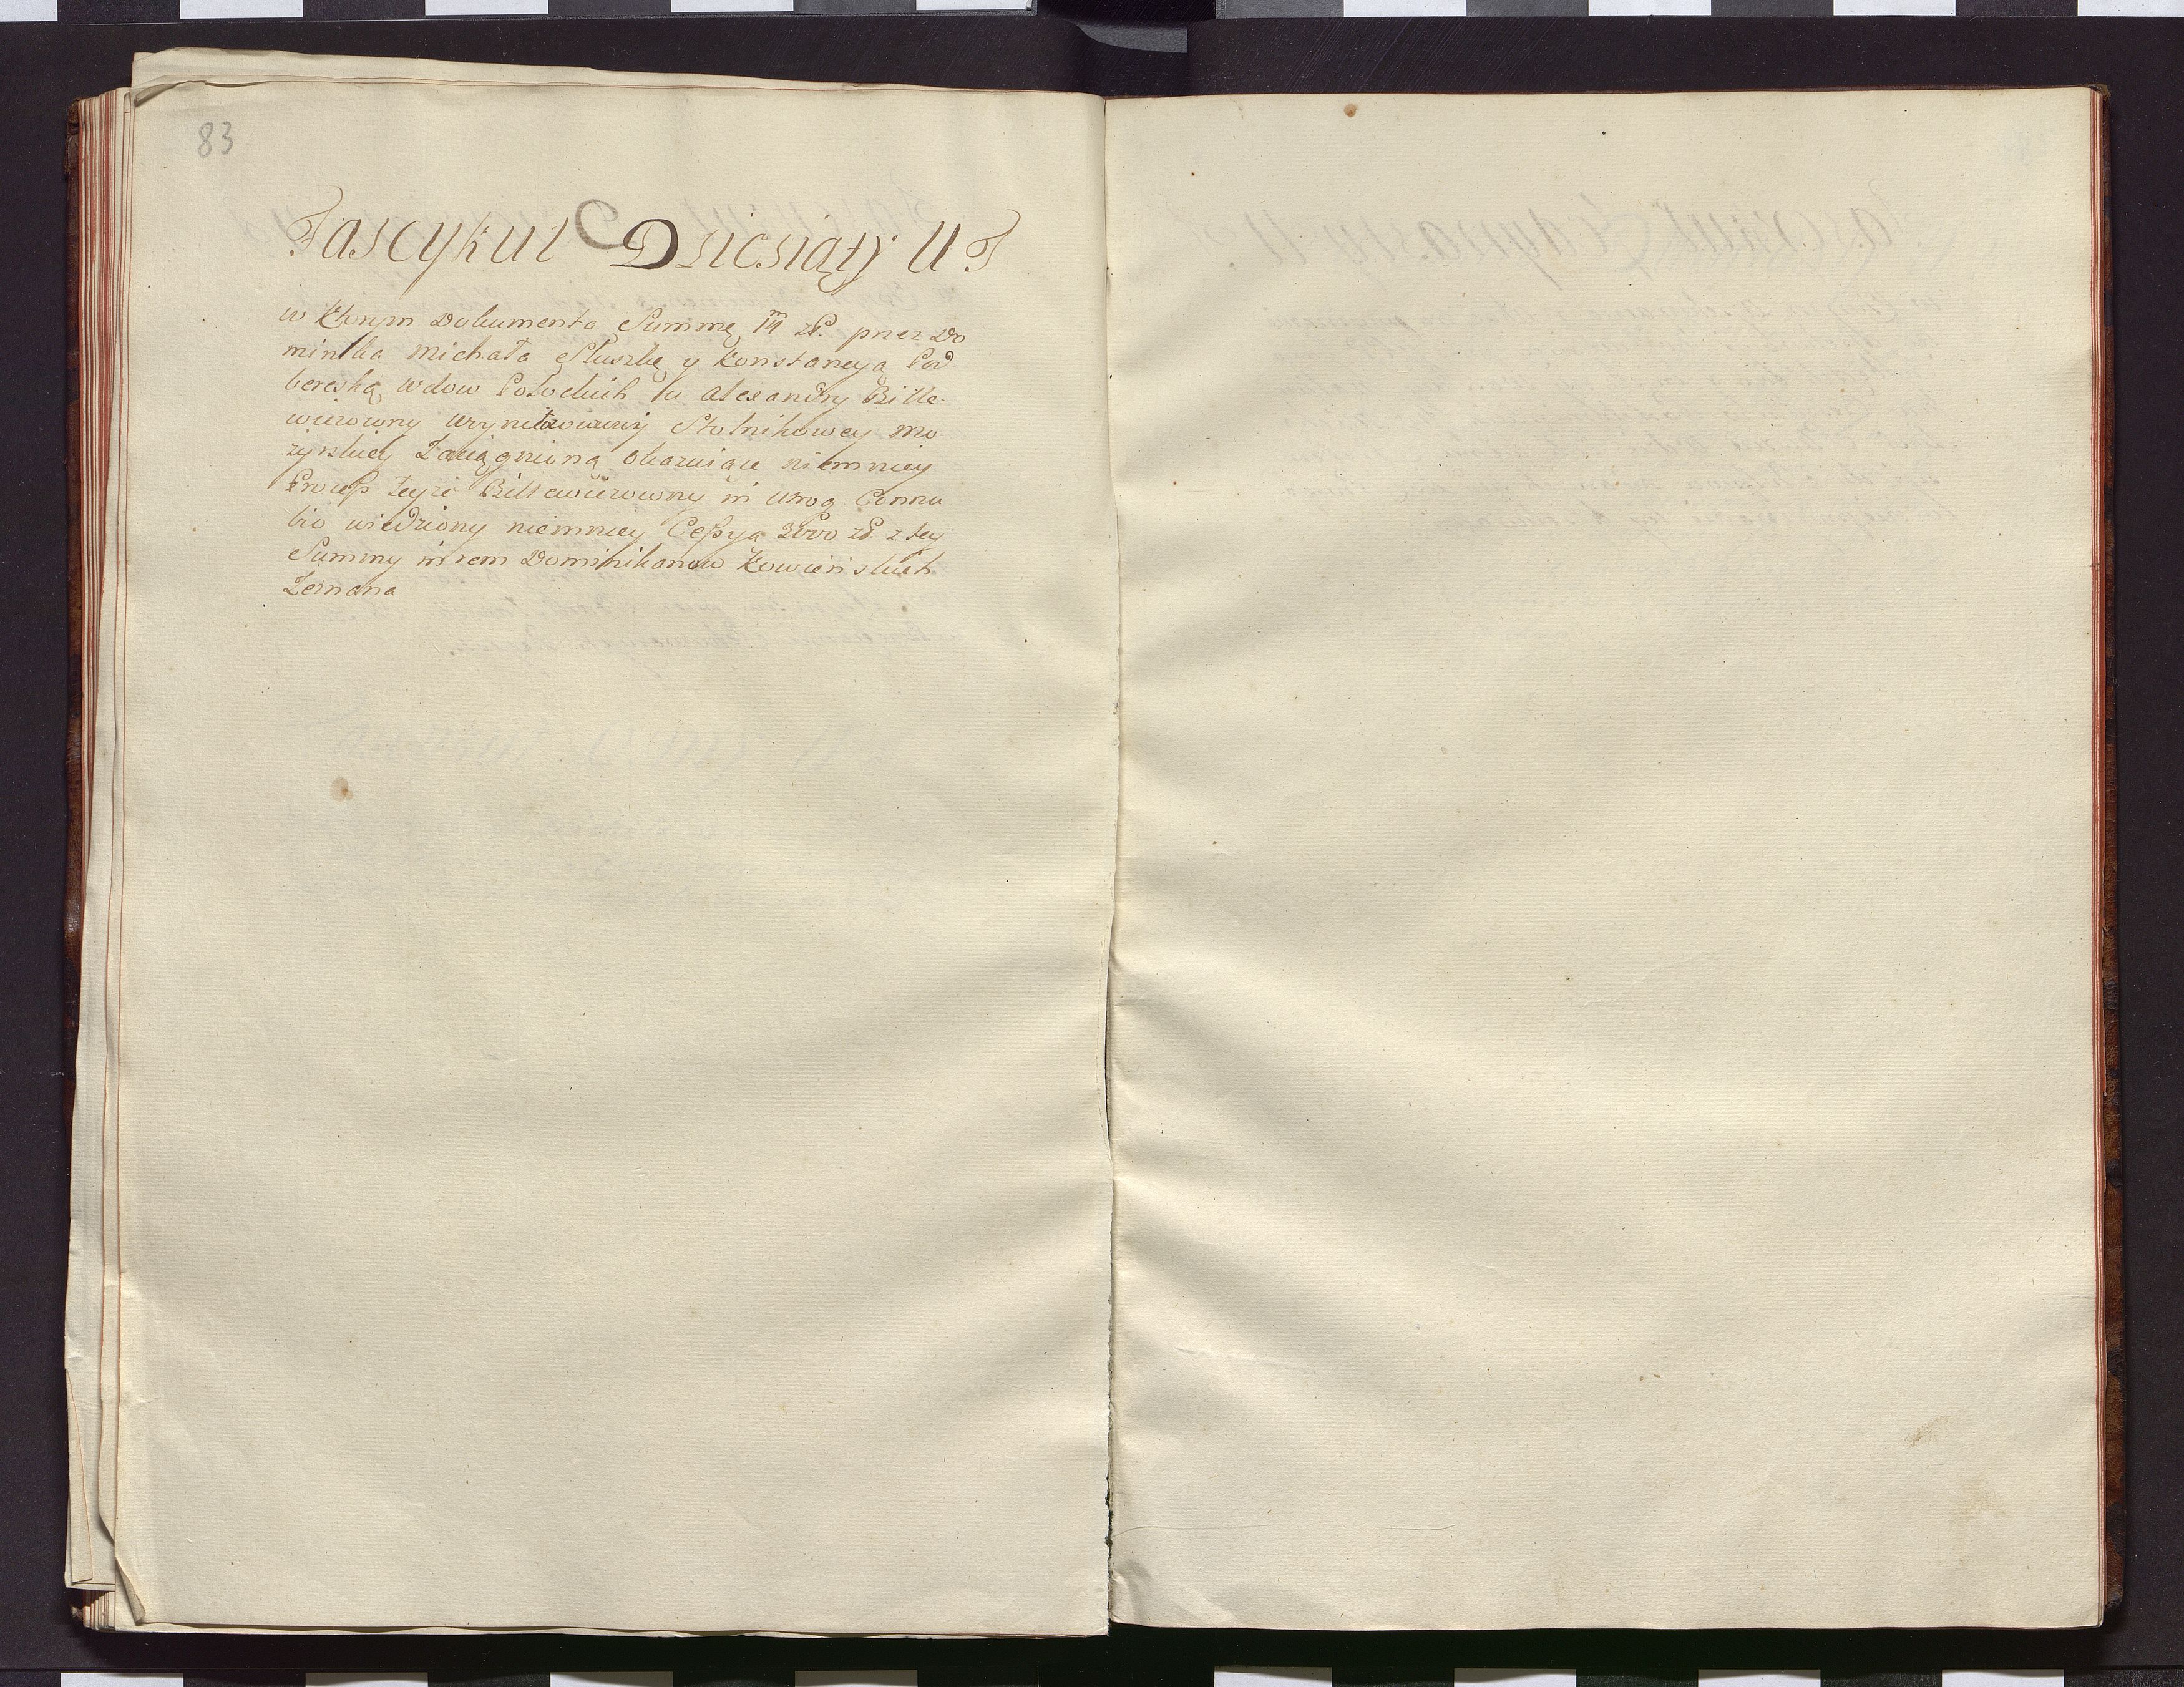 83
Fascykuł Dziesiąty U T
w Ktorym Dokumenta Summę 14 m zł. przez Do
minika Michała Słuszkę y Konstancyą Pod
bereską Wdow Potockich tu Alexandry Bille
wiczowny Stolnikowey Mo
zyrskiey Zaciągnioną Okazuiące niemniey
Process teyże Billewiczowny in
bio wiedziony niemniey Cessya 3000 zł. z tey
Summy in rem Dominikanow Kowieńskich
Zeznana